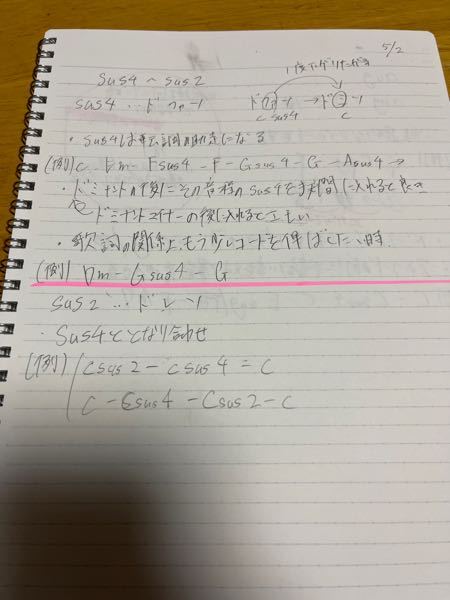 5/2
1度下がりたがる
sus4 〜 sus2
sus4 … ド ファ ソ ド ファ ソ → ド ミ ソ
C sus4 C
・sus4は転調の
(例) C - Dm - Fsus4 - F - Gsus4 - G - Asus4 →
・ドミナントの後にその音程のsus4をま間に入れると良き
ドミナントマイナーの後に入れるとエモい
・歌詞の関係上もう少しコードを伸ばしたい時
(例) Dm - Gsus4 - G
sus2 … ド レ ソ
・sus4ととなり合わせ
(例) Csus2 - Csus4 = C
C - Csus4 - Csus2 - C